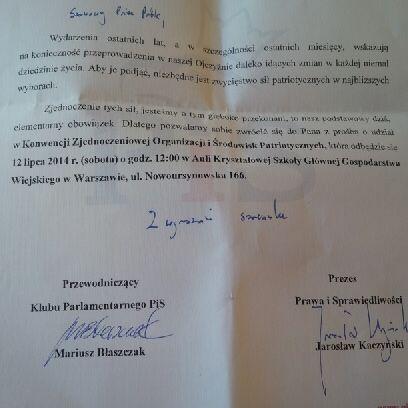 Szanowny Panie Pośle,
Wydarzenia ostatnich lat, a w szczególności ostatnich miesięcy, wskazują
na konieczność przeprowadzenia w naszej Ojczyźnie daleko idących zmian w każdej niemal
dziedzinie życia. Aby je podjąć, niezbędne jest zwycięstwo sił patriotycznych w najbliższych
wyborach.
Zjednoczenie tych sił, jesteśmy o tym głęboko przekonani, to nasz podstawowy dziś,
elementarny obowiązek. Dlatego pozwalamy sobie zwrócić się do Pana z prośbą o udział
w Konwencji Zjednoczeniowej Organizacji i Środowisk Patriotycznych, która odbędzie się
12 lipca 2014 r. (sobota) o godz. 12:00 w Auli Kryształowej Szkoły Głównej Gospodarstwa
Wiejskiego w Warszawie, ul. Nowoursynowska 166.
Z wyrazami szacunku
Przewodniczący
Klubu Parlamentarnego PiS
Mariusz Błaszczak
Prezes
Prawa i Sprawiedliwości
Jarosław Kaczyński